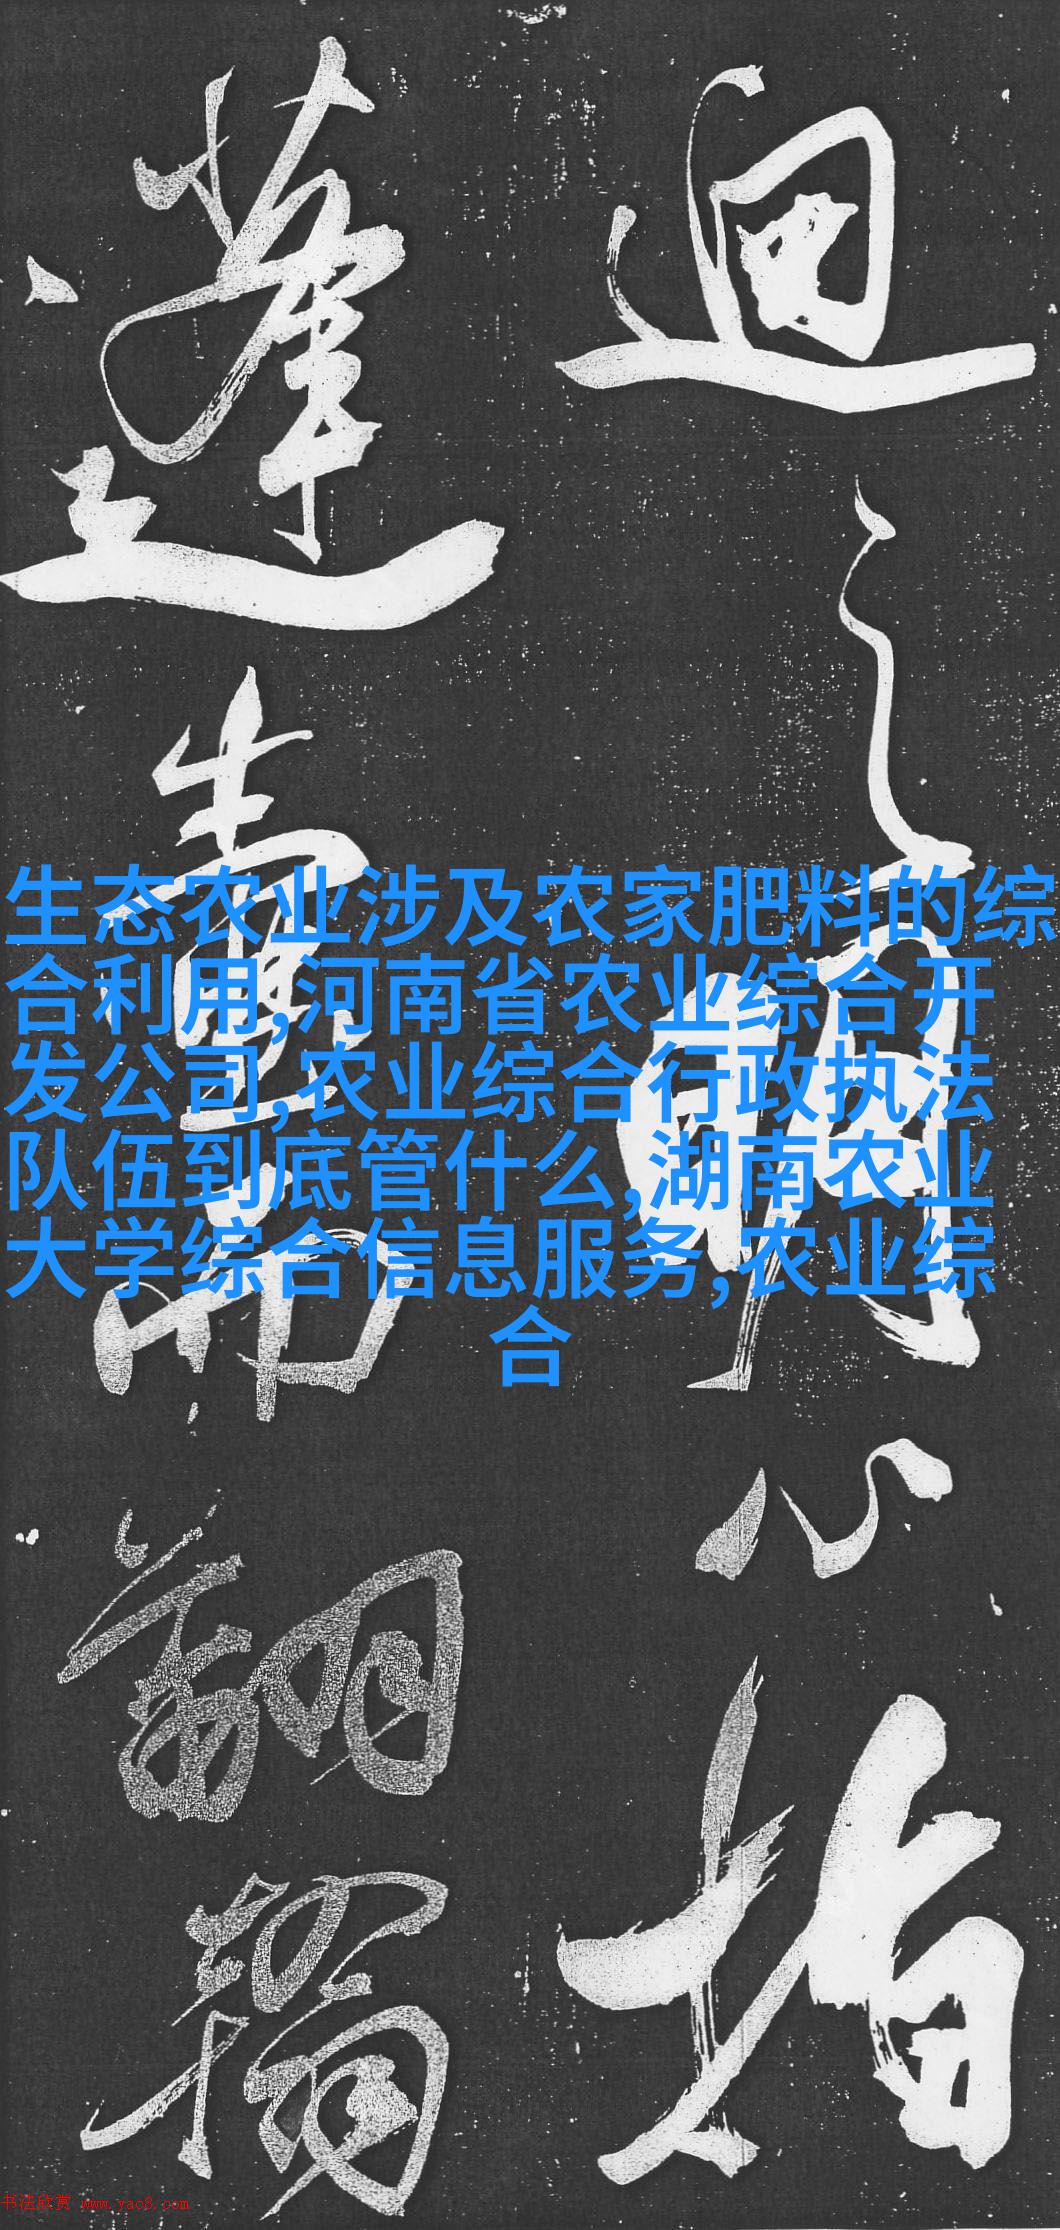 迴之明心指
蓬壺而翻翰
生态农业涉及农家肥料的综
合利用,河南省农业综合开
发公司,农业综合行政执法
队伍到底管什么,湖南农业
大学综合信息服务,农业综
合
书法欣赏 www.yac8.com